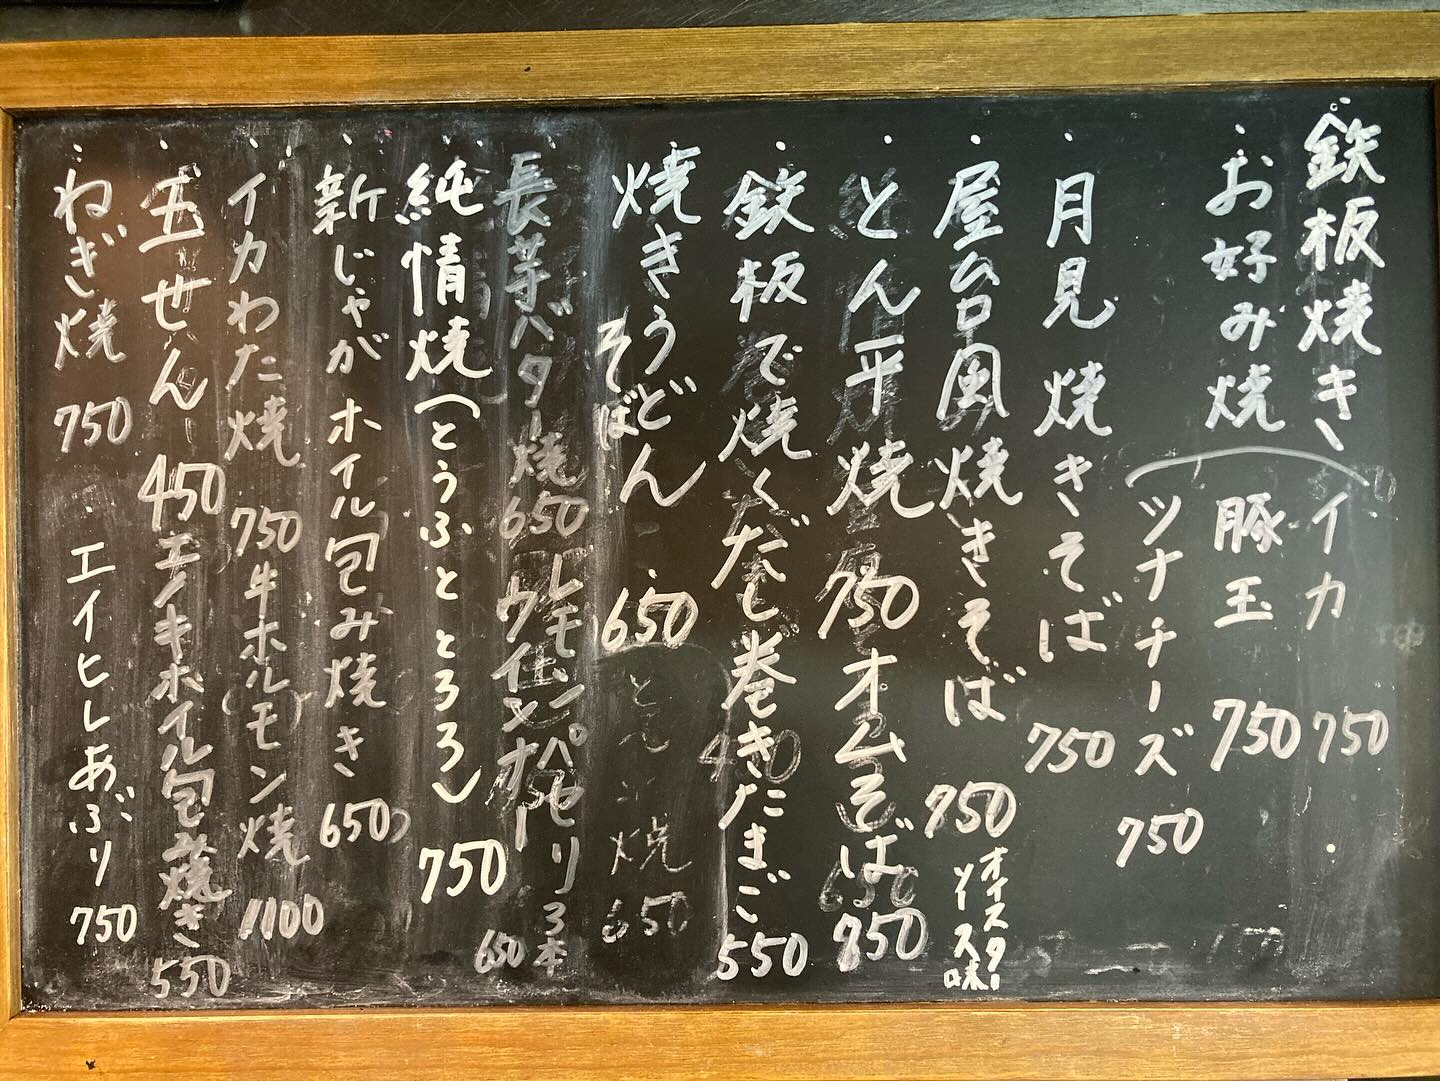 鉄板焼き
イカ 750
お好み焼
豚玉 750
ツナチーズ 750
月見焼きそば 750
屋台風焼きそば 750
オイスターソース味
とん平焼 750
オムそば 850
鉄板で焼くだし巻きたまご 550
焼きうどん 650
そばん
焼 650
長芋バター焼 650
レモンパセリ
ウインナー 3本 650
純情焼(とうふととろろ) 750
新じゃがホイル包み焼き 650
イカわた焼 750
牛ホルモン焼 1100
玉せん 450
エノキホイル包み焼き 550
ねぎ焼 750
エイヒレあぶり 750